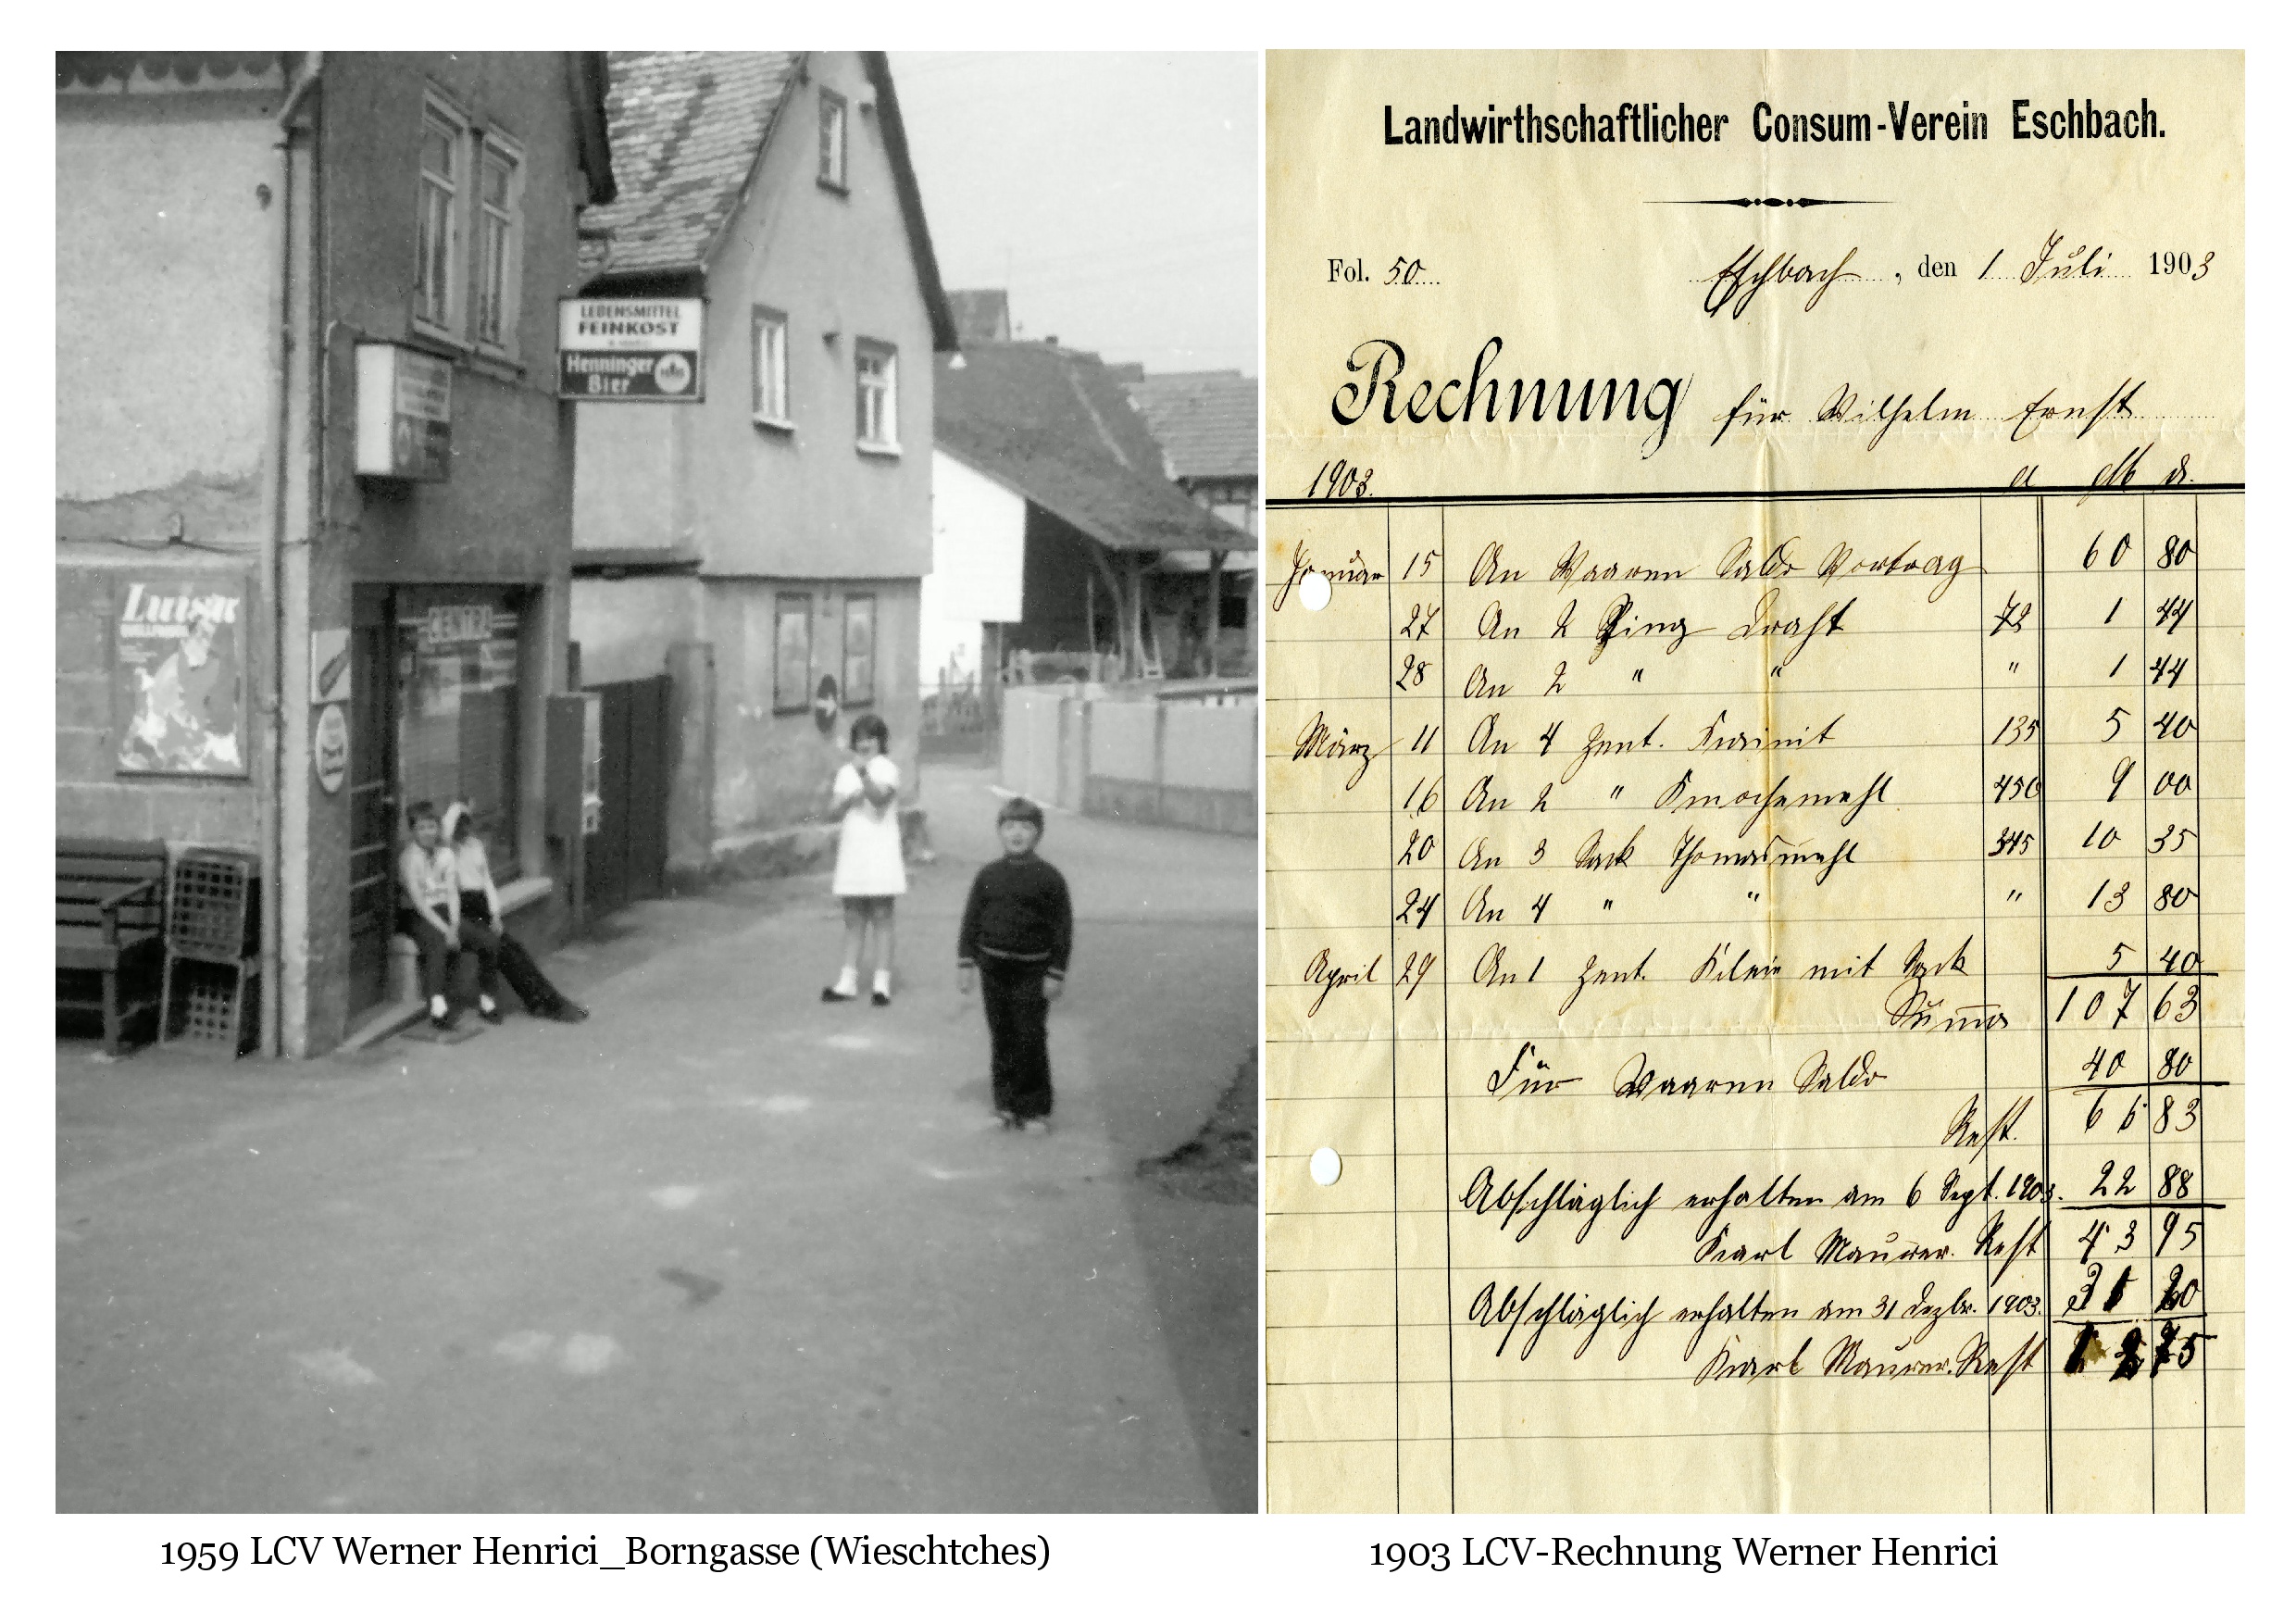 LEBENSMITTEL
FEINKOST
Henninger
Bier
CENTRA
Landwirthschaftlicher Consum-Verein Eschbach.
Fol. 50 Eschbach, den 1 Juli 1903
Rechnung für Wilhelm Ernst
1903. a M ₰.
Januar 15 An Waaren Saldo Vortrag 60 80
27 An 2 Ring Draht 72 1 44
28 An 2 " " " 1 44
März 11 An 4 Zent. Kainit 135 5 40
16 An 2 " Knochemehl 450 9 00
20 An 3 Sack Thomasmehl 345 10 35
24 An 4 " " " 13 80
April 29 An 1 Zent. Kleie mit Sack 5 40
Suma 107 63
Für Waaren Saldo 40 80
Rest. 66 83
Abschläglich erhalten am 6 Sept. 1903. 22 88
Karl Maurer. Rest 43 95
Abschläglich erhalten am 31 Dezbr. 1903. 31 20
Karl Maurer. Rest 75
1959 LCV Werner Henrici_Borngasse (Wieschtches)
1903 LCV-Rechnung Werner Henrici